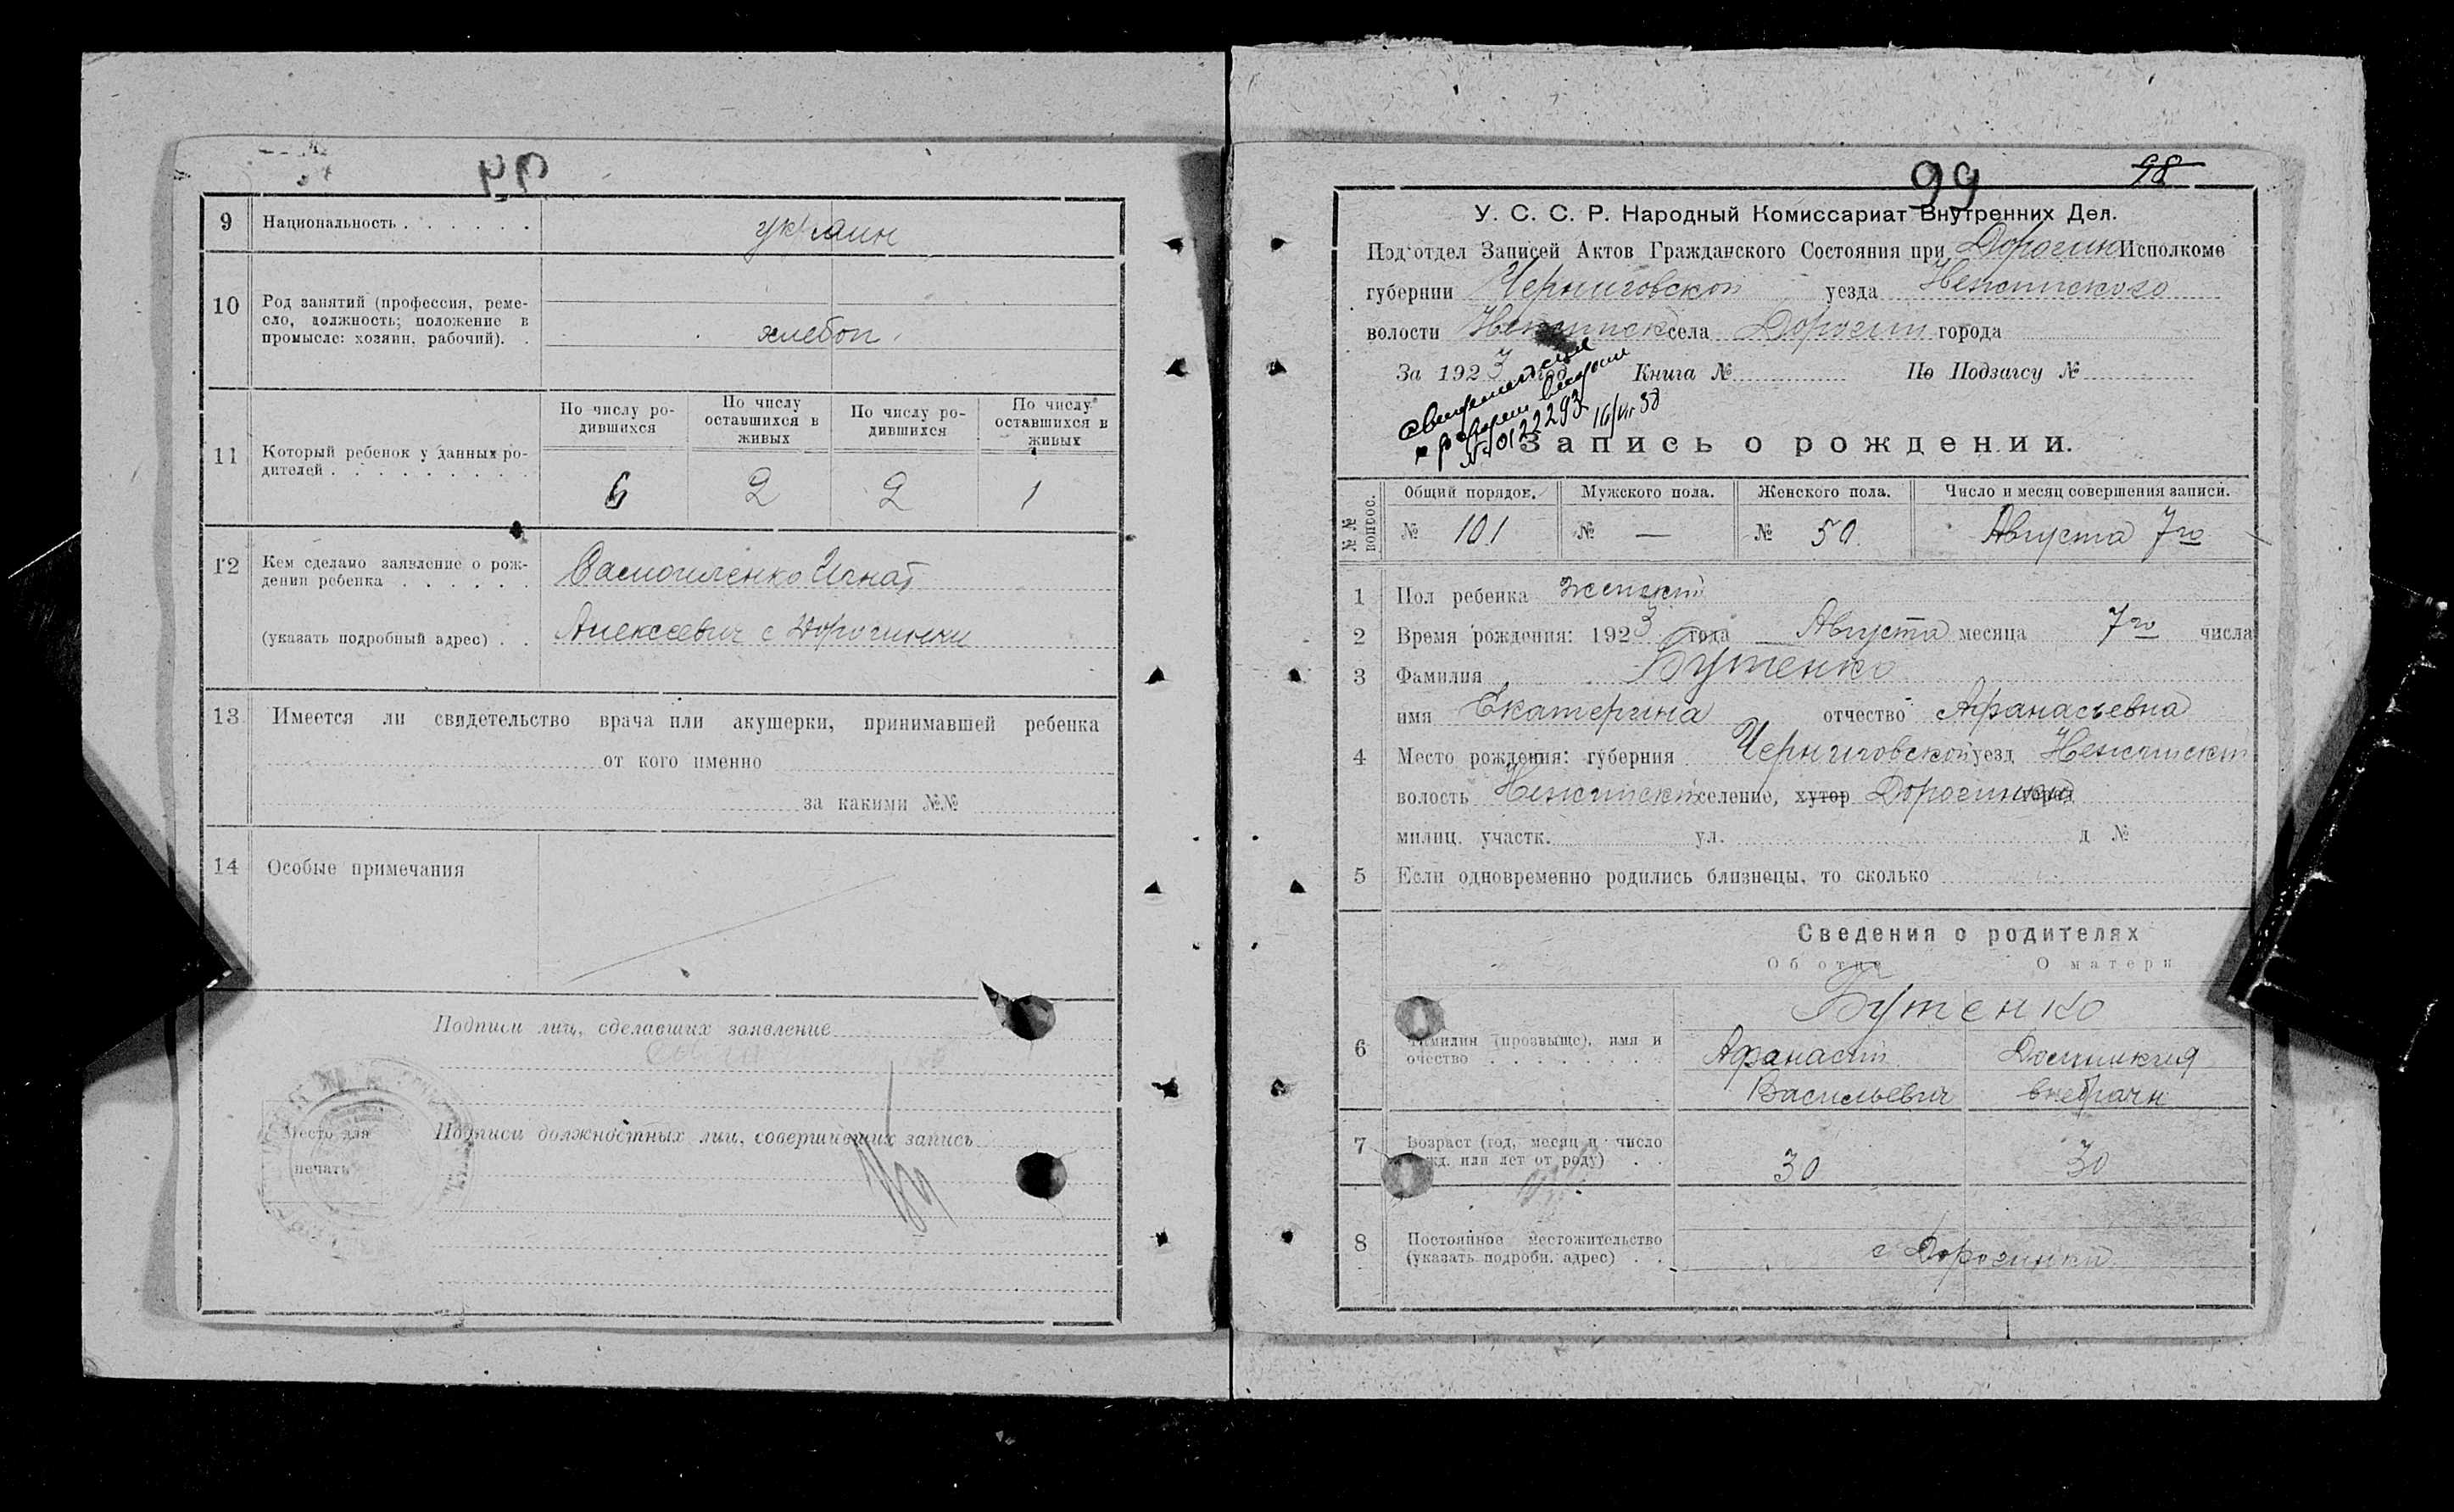 9 Национальность . . . . . . украин
10 Род занятий (профессия, реме-
сло, должность; положение в
промысле: хозяин, рабочий). . хлебоп.
11 Который ребенок у данных ро-
дителей . . . . . . . . .
По числу ро-
дившихся
По числу
оставшихся в
живых
По числу ро-
дившихся
По числу
оставшихся в
живых
6 2 2 1
12 Кем сделано заявление о рож-
дении ребенка . . . . . . Самойленко Игнат
(указать подробный адрес) . . Алексеевич с Дорогинки
13 Имеется ли свидетельство врача или акушерки, принимавшей ребенка
от кого именно
за какими №№
14 Особые примечания
Подписи лиц, сделавших заявление
Место для
печати
Подписи должностных лиц, совершивших запись
99 98
У. С. С. Р. Народный Комиссариат Внутренних Дел.
Подотдел Записей Актов Гражданского Состояния при Дорогин Исполкоме
губернии Черниговской уезда Нежинского
волости Нежинск села Дорогин города
За 1923 год Книга № По Подзагсу №
№ 0122293
Запись о рождении.
№№ вопрос.
Общий порядок. Мужского пола. Женского пола. Число и месяц совершения записи.
№ 101 № — № 50. Августа 7го
1 Пол ребенка женский
2 Время рождения: 1923 года Августа месяца 7го числа
3 Фамилия Бутенко
имя Екатерина отчество Афанасьевна
4 Место рождения: губерния Черниговской уезд Нежинский
волость Нежинский селение, хутор Дорогинка город
милиц. участк. ул. д №
5 Если одновременно родились близнецы, то сколько
Сведения о родителях
Об отце О матери
Бутенко
6 Фамилия (прозвище), имя и
очество . . . . . . . . Афанасий Домникия
Васильевич внебрачн
7 Возраст (год, месяц и число
рожд. или лет от роду) . . 30 30
8 Постоянное местожительство
(указать подробн. адрес) . . с Дорогинки